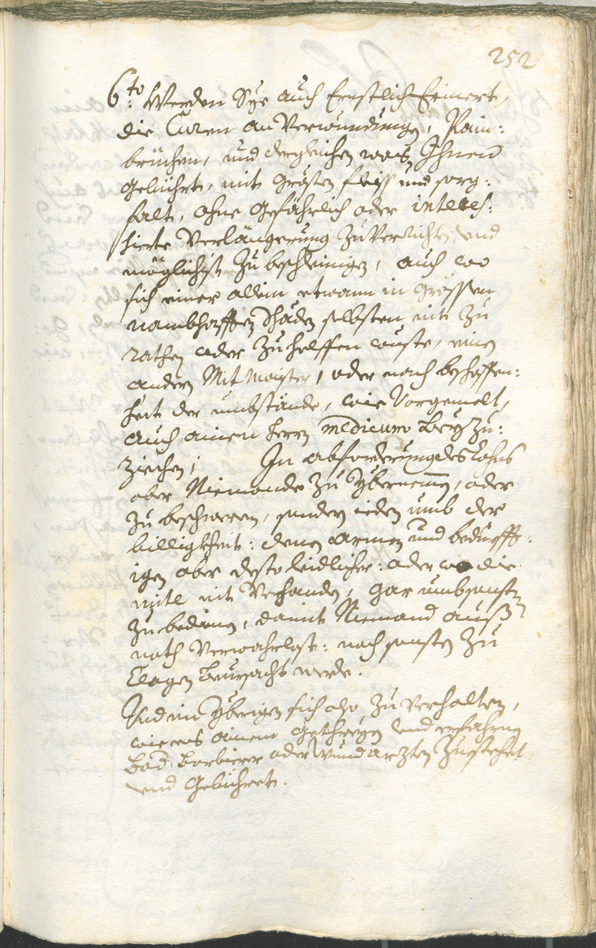 252
6to: Werden Sye auch Ernstlich Ermert,
die Curen an Verwundung, Pain:
brüchen, und dergleichen was Ihnen
gebührt, mit grösten fleiss und sorg:
falt, ohne gefährlich oder interes:
sierte Verlängerung zu Verrichten, und
möglichist zu beschleinigen, auch wo
sich einer allein etwann in grossen
nambhafften Schaden selbsten nit zu
rathen oder zu helffen wuste, einen
andern Mit Maister, oder nach beschaffen:
heit der umbstände, wie Vorgemelt,
auch ainen Herrn medicum beyzu:
ziechen; In abforderung des lohns
aber Niemande zu ybernemen, oder
zu beschweren, sondern ieden umb der
billigkheit: denen armen und bedürfft:
igen aber desto leidlicher: oder wo die
mitl nit Verhanden, gar umbsonst
zu bedienen, damit Niemand auss
noth Verwahrlost: noch sonsten zu
klagen Verursacht werde.
Und im ybrigen sich also zu Verhalten,
wie es ainem getreyen und erfahrnen
Bad: Barbierer oder Wundarzten zustehet
und gebühret.